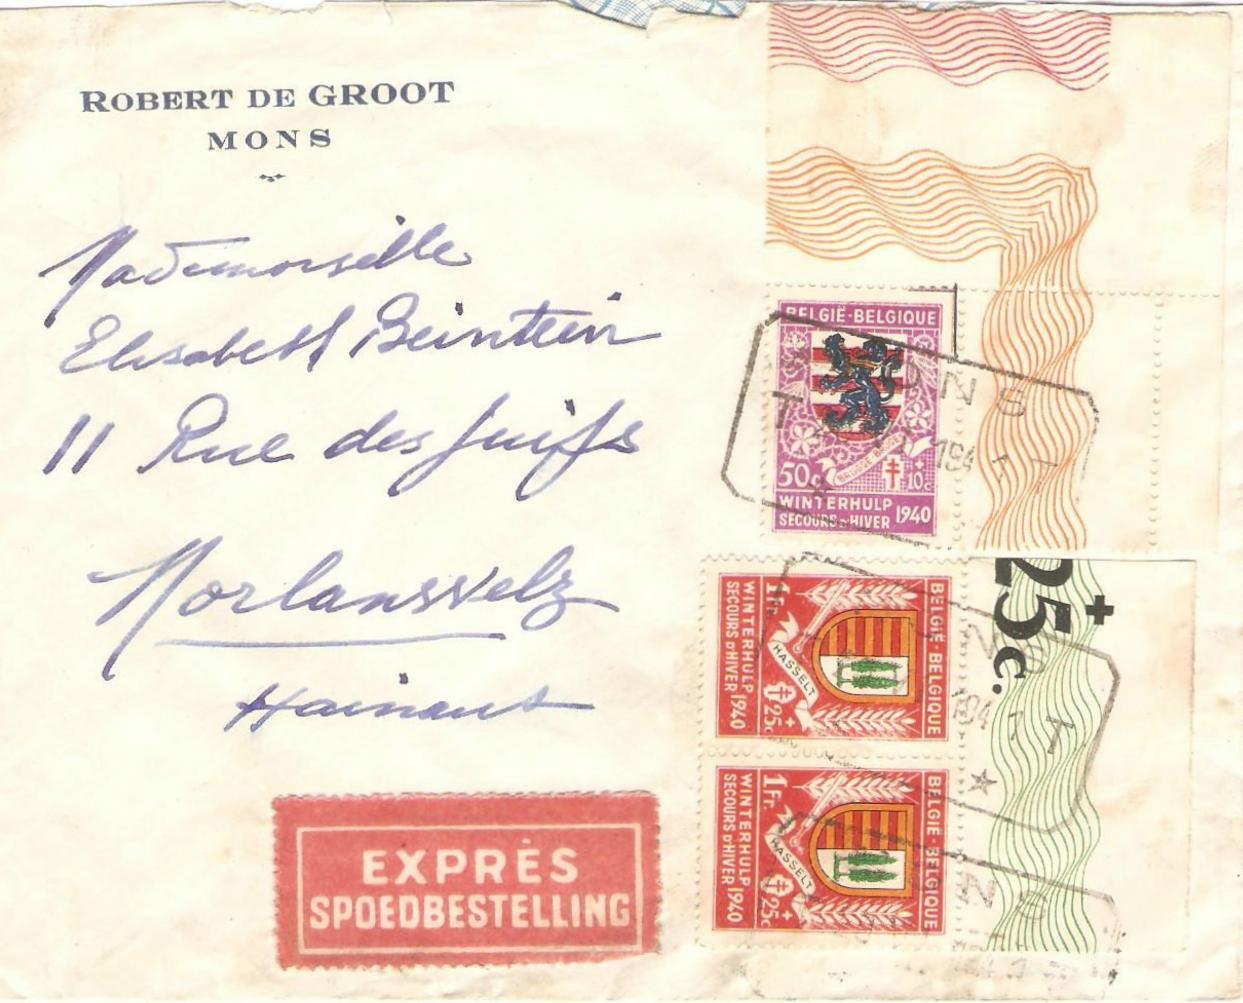 ROBERT DE GROOT
MONS
Mademoiselle
Elisabeth Beintein
11 Rue des Juifs
Morlanwelz
Hainaut
EXPRÈS
SPOEDBESTELLING
BELGIË-BELGIQUE
50c
+10c
WINTERHULP
SECOURS D'HIVER 1940
MONS
T 194 1 T
+
25
c.
BELGIË-BELGIQUE
1Fr.
HASSELT
+25c
WINTERHULP
SECOURS D'HIVER 1940
194 1 T
BELGIË-BELGIQUE
1Fr.
HASSELT
+25c
WINTERHULP
SECOURS D'HIVER 1940
ONS